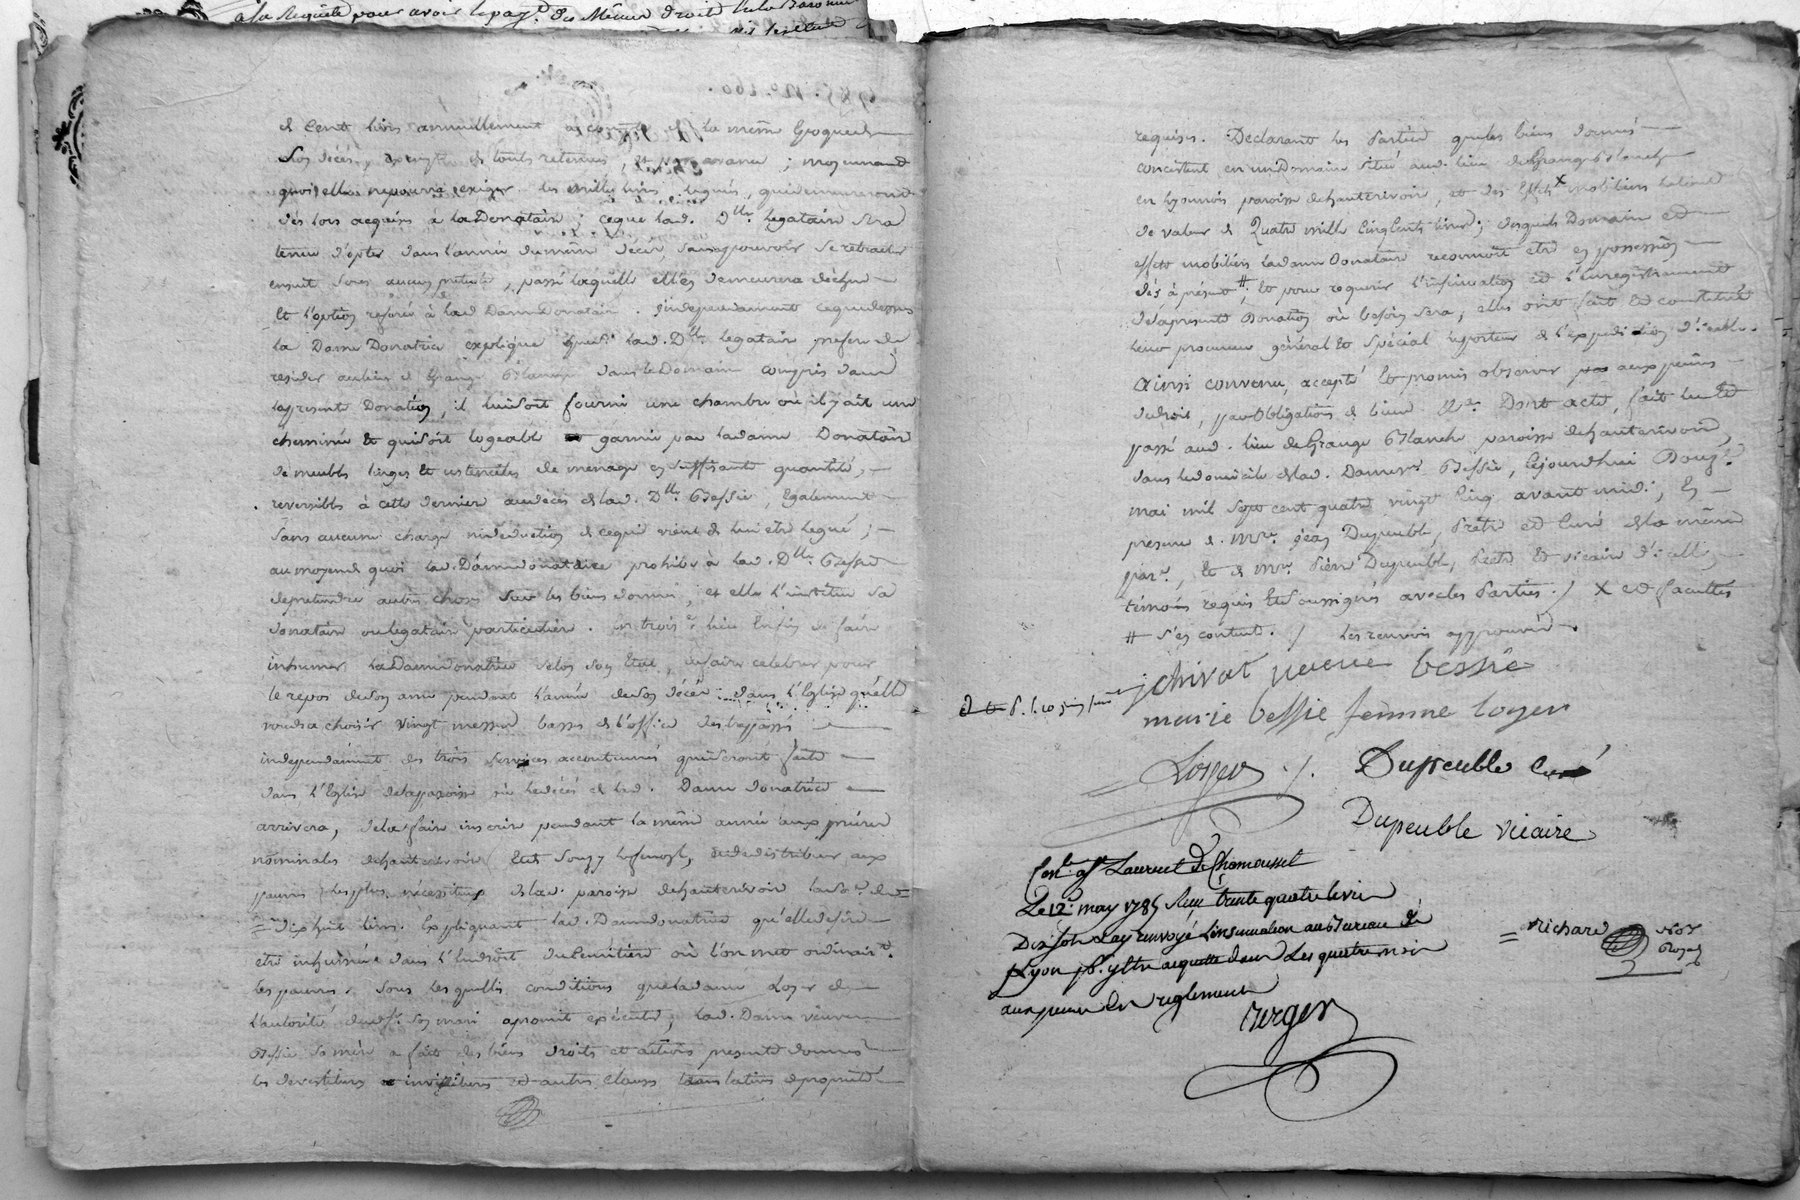 a la Requête pour avoir le pay.t des Mêmes droits
et Cent livres annuellement à compter de la même Epoque de
son décès, exempte de toute retenue, et par avance; moyennant
quoi elle ne pourra exiger les mille livres leguées qui demeureront
dès lors acquises à la Donataire; ce que lad. D.lle legataire sera
tenue d'opter dans l'année du même décès, sans pouvoir se retracter
ensuite sous aucun prétexte, passé laquelle elle en demeurera déchue
et l'option referée à lad. Dame Donataire. Independamment de ce que dessus
la Dame Donatrice explique que si lad. D.lle legataire prefere de
resider au lieu de Grange Blanche dans le Domaine compris dans
la presente Donation, il lui soit fourni une chambre où il y ait une
cheminée et qui soit logeable garnie par la dame Donataire
de meubles linges et ustenciles de menage en suffisante quantité,
reversibles à cette derniere au décès de lad. D.lle Bessie, Egalement
sans aucune charge ni deduction de ce qui vient de lui etre legué;
au moyen de quoi lad. Dame donatrice prohibe à lad. D.lle Bessie
de pretendre autre chose sur les biens donnés, et elle l'institue sa
donataire ou legataire particuliere. En trois.e lieu Enfin de faire
inhumer la Dame donatrice selon son Etat, de faire celebrer pour
le repos de son ame pendant l'année de son décès dans l'Eglise qu'elle
voudra choisir vingt messes basses de l'office des trepassés
independamment des trois services accoutumés qui seront faits
dans l'Eglise de la paroisse où le décès de lad. Dame donatrice
arrivera, de la faire inscrire pendant la même année aux prieres
nominales de hauterivoir et de distribuer aux
pauvres les plus necessiteux de lad. paroisse de hauterivoir la so.e de
dixhuit livres. Expliquant lad. Dame donatrice qu'elle desire
etre inhumée dans l'Endroit du Cemitiere où l'on met ordinair.t
les pauvres. Sous lesquelles conditions que la dame Loyer de
l'autorité dud. s.r son mari a promis exécuter, lad. Dame veuve
Bessie sa mere a fait des biens droits et actions presentem. donnés
les devestitures investitures et autres clauses translatives de propriété
requises. Declarant les Parties que les biens donnés
consistent en un Domaine situé aud. lieu de Grange Blanche
en Lyonnois paroisse de hauterivoir, et des Effets X mobiliers le tout
de valeur de Quatre mille Cinq Cents livres; desquels Domaine et
effets mobiliers la dame Donataire reconnoit etre en possession
dès à présent #; et pour requerir l'insinuation et l'Enregistrement
de la presente Donation où besoin sera, elles ont fait et constitué
leur procureur général et spécial le porteur de l'expedition d'icelle.
Ainsi convenu, accepté et promis observer aux peines
de droit, par obligations de biens &.a Dont acte, fait lu et
passé aud. lieu de Grange Blanche paroisse de hauterivoir,
dans le domicile de lad. Dame v.ve Bessie, Cejourdhui Douze
mai mil sept cent quatre vingt cinq avant midi, En
presence de M.re jean Dupeuble, Prêtre et Curé de la même
par.e, et de M.re Pierre Dupeuble, Prêtre et vicaire d'icelle,
témoins requis et soussignés avec les Parties ./. X et facultés
# s'en content. ./. les renvois approuvés.
j chirat veuve bessie
marie bessie femme loyer
Loyer ./. Dupeuble Curé
Dupeuble vicaire
Con.le à S.t Laurent de Chamousset
Le 12 may 1785 Recu trente quatre livres
Dix sols Lay renvoyé Linsinuation au Bureau de
Lyon p.r y etre acquitté dans Les quatre mois
aux peines des reglements
Berger
Richard Not. Royal